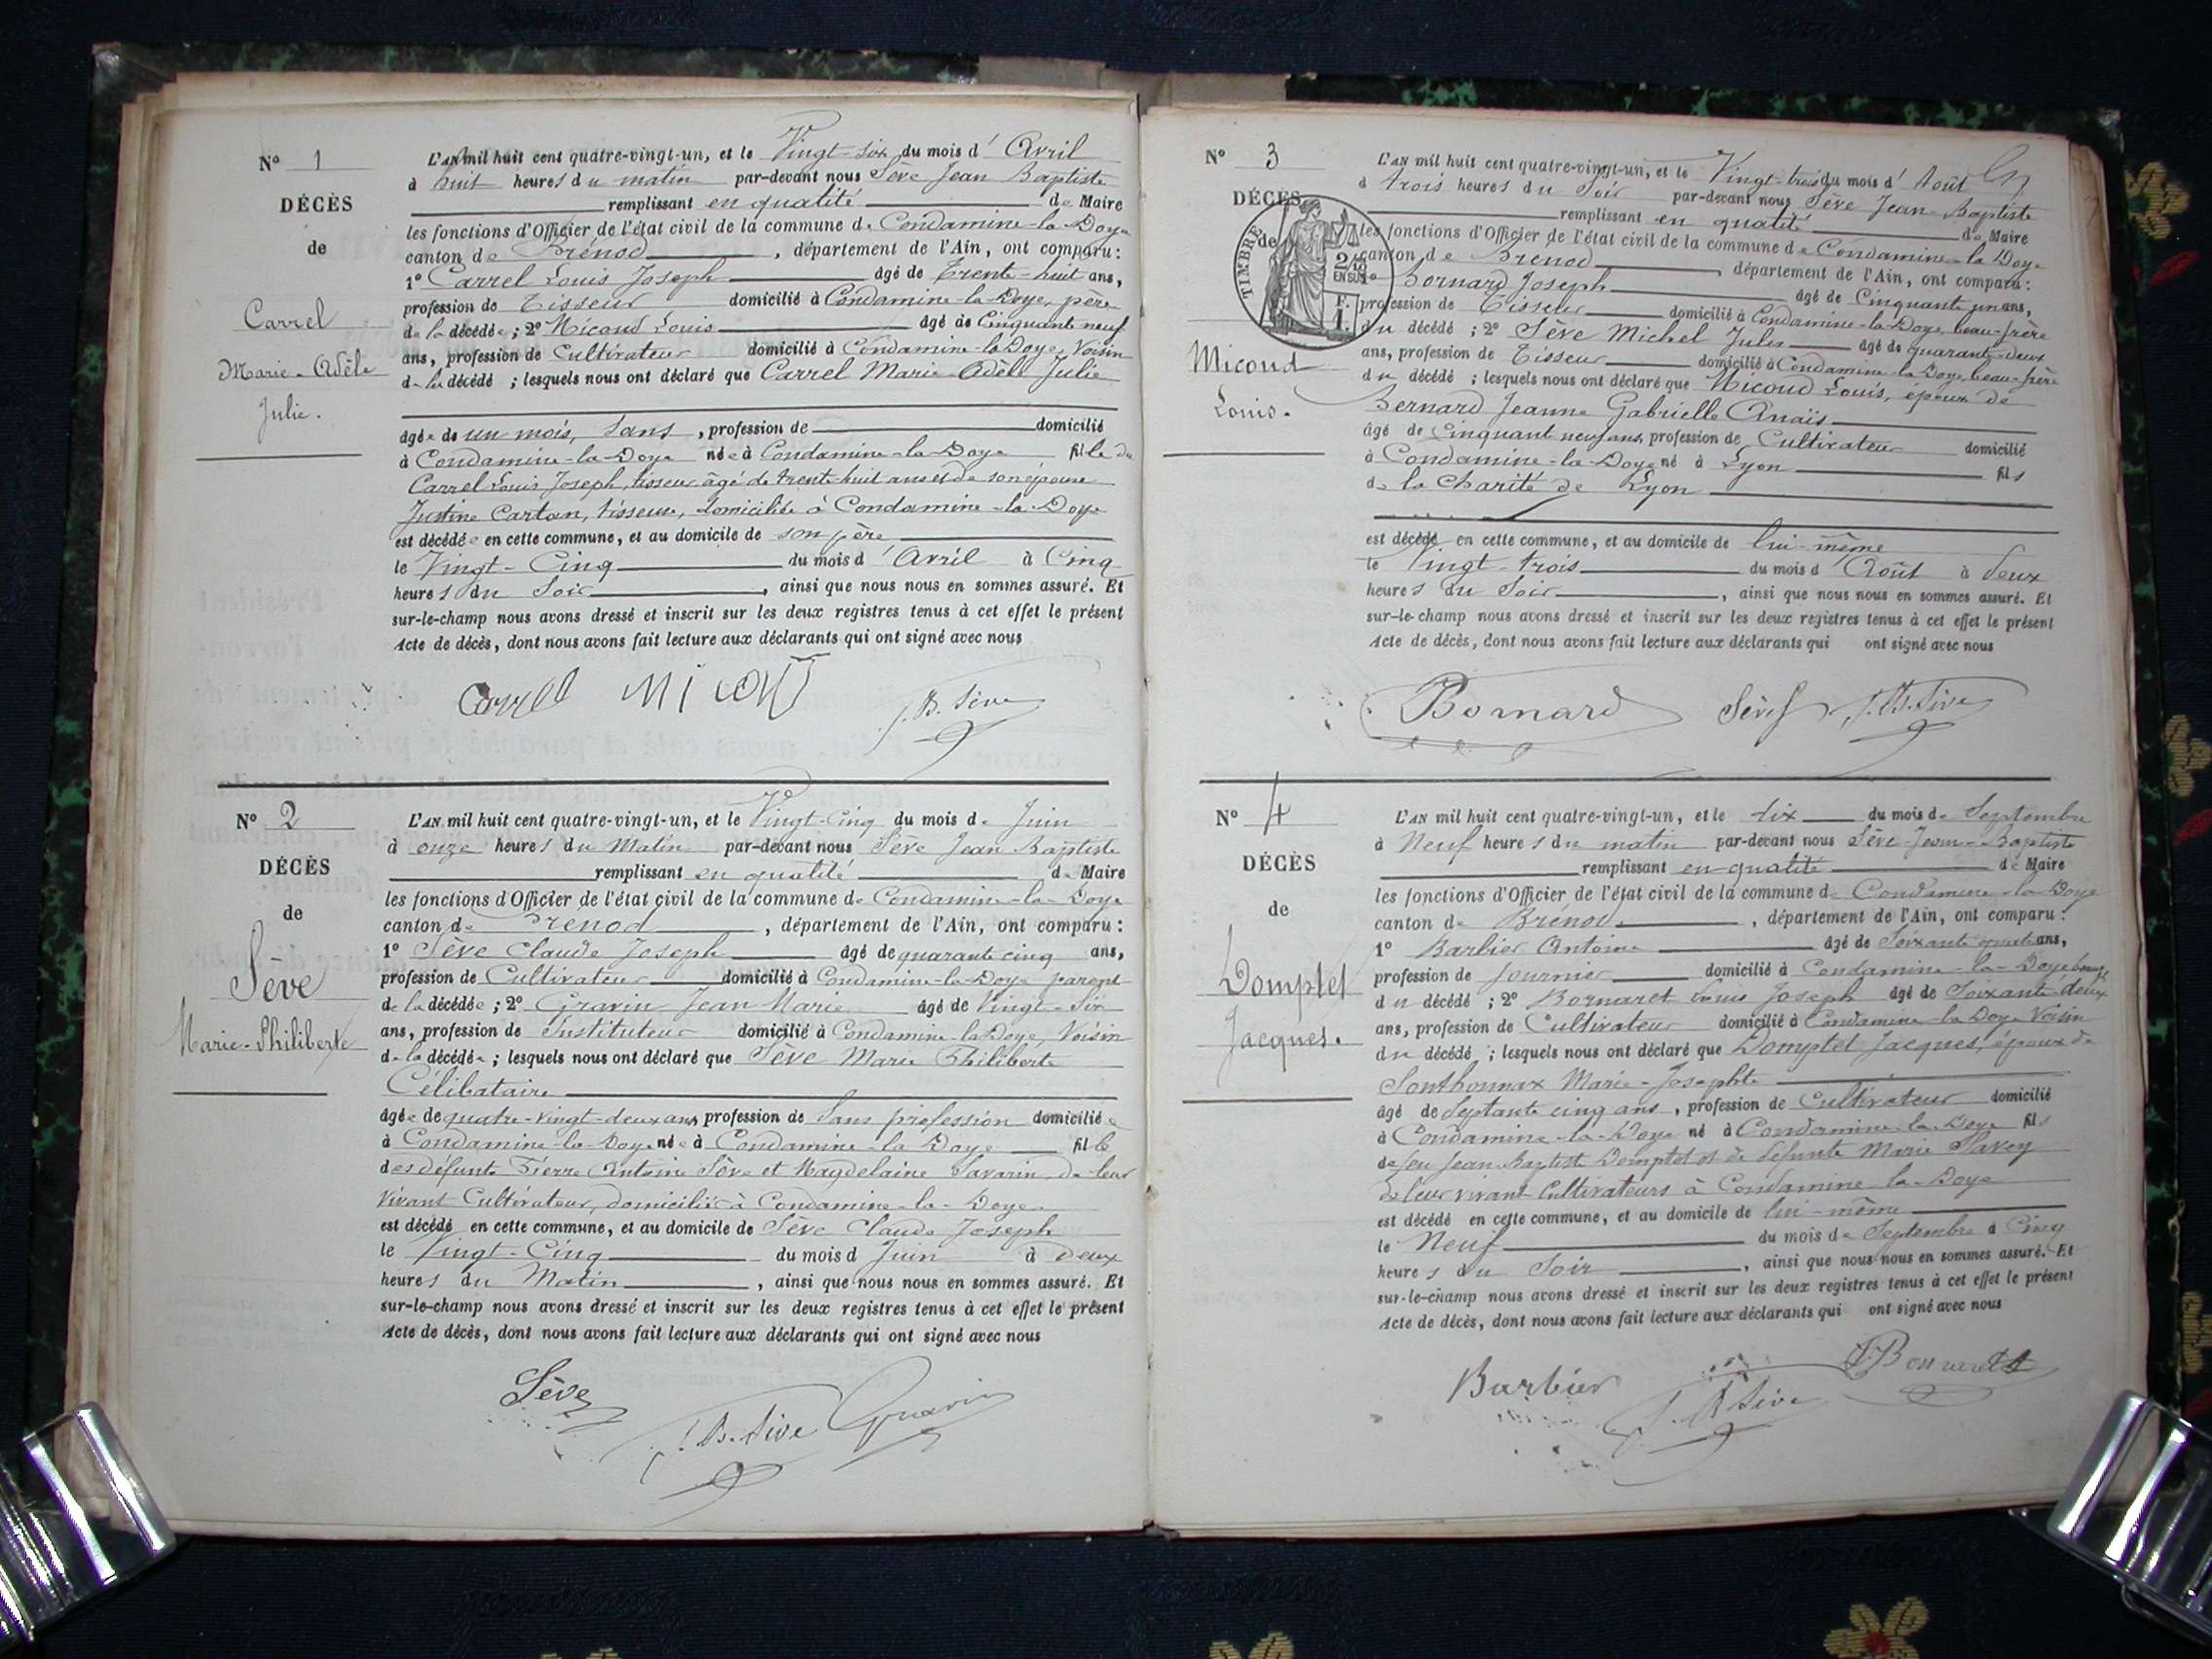 N° 1
DÉCÈS
de
Carrel
Marie-Adèle
Julie.
L'AN mil huit cent quatre-vingt-un, et le Vingt-six du mois d'Avril
à huit heures du matin par-devant nous Sève Jean Baptiste
remplissant en qualité de Maire
les fonctions d'Officier de l'état civil de la commune de Condamine-la-Doye
canton de Brénod, département de l'Ain, ont comparu:
1° Carrel Louis Joseph âgé de Trente-huit ans,
profession de Tisseur domicilié à Condamine-la-Doye, père
de la décédée; 2° Micoud Louis âgé de Cinquante neuf
ans, profession de Cultivateur domicilié à Condamine-la-Doye, Voisin
de la décédé; lesquels nous ont déclaré que Carrel Marie-Adèle Julie
âgée de un mois, Sans, profession de domicilié
à Condamine-la-Doye née à Condamine-la-Doye fille de
Carrel Louis Joseph, tisseur âgé de trente huit ans et de son épouse
Justine Cartan, tisseuse, domiciliée à Condamine-la-Doye
est décédée en cette commune, et au domicile de son père
le Vingt-Cinq du mois d'Avril à Cinq
heures du Soir, ainsi que nous nous en sommes assuré. Et
sur-le-champ nous avons dressé et inscrit sur les deux registres tenus à cet effet le présent
Acte de décès, dont nous avons fait lecture aux déclarants qui ont signé avec nous
Carrel Micoud J. B. Sève
N° 2
DÉCÈS
de
Sève
Marie-Philiberte
L'AN mil huit cent quatre-vingt-un, et le Vingt-Cinq du mois de Juin
à onze heures du Matin par-devant nous Sève Jean Baptiste
remplissant en qualité de Maire
les fonctions d'Officier de l'état civil de la commune de Condamine-la-Doye
canton de Brenod, département de l'Ain, ont comparu:
1° Sève Claude Joseph âgé de quarante cinq ans,
profession de Cultivateur domicilié à Condamine-la-Doye parent
de la décédée; 2° Gravin Jean Marie âgé de Vingt-Six
ans, profession de Instituteur domicilié à Condamine-la-Doye, Voisin
de la décédée; lesquels nous ont déclaré que Sève Marie Philiberte
Célibataire
âgée de quatre-vingt-deux ans, profession de Sans profession domiciliée
à Condamine-la-Doye née à Condamine-la-Doye fille
des défunts Pierre Antoine Sève et Magdelaine Savarin, de leur
vivant Cultivateur, domiciliés à Condamine-la-Doye
est décédé en cette commune, et au domicile de Sève Claude Joseph
le Vingt-Cinq du mois d Juin à Deux
heures du Matin, ainsi que nous nous en sommes assuré. Et
sur-le-champ nous avons dressé et inscrit sur les deux registres tenus à cet effet le présent
Acte de décès, dont nous avons fait lecture aux déclarants qui ont signé avec nous
Sève J. B. Sève Gravin
N° 3
DÉCÈS
de
TIMBRE
2/10 EN SUS
Micoud
Louis.
L'AN mil huit cent quatre-vingt-un, et le Vingt-trois du mois d'Août
à trois heures du Soir par-devant nous Sève Jean-Baptiste
remplissant en qualité de Maire
les fonctions d'Officier de l'état civil de la commune de Condamine-la-Doye
canton de Brenod, département de l'Ain, ont comparu:
1° Bornard Joseph âgé de Cinquante un ans,
profession de Tisseur domicilié à Condamine-la-Doye, beau-frère
du décédé; 2° Sève Michel Jules âgé de quarante-deux
ans, profession de Tisseur domicilié à Condamine-la-Doye, beau-frère
du décédé; lesquels nous ont déclaré que Micoud Louis, époux de
Bernard Jeanne Gabrielle Anaïs
âgé de Cinquante neuf ans, profession de Cultivateur domicilié
à Condamine-la-Doye né à Lyon fils
de la Charité de Lyon
est décédé en cette commune, et au domicile de lui-même
le Vingt-trois du mois d Août à deux
heures du Soir, ainsi que nous nous en sommes assuré. Et
sur-le-champ nous avons dressé et inscrit sur les deux registres tenus à cet effet le présent
Acte de décès, dont nous avons fait lecture aux déclarants qui ont signé avec nous
Bornard Sève J. B. Sève
N° 4
DÉCÈS
de
Domptet
Jacques.
L'AN mil huit cent quatre-vingt-un, et le dix du mois de Septembre
à Neuf heures du matin par-devant nous Sève Jean-Baptiste
remplissant en qualité de Maire
les fonctions d'Officier de l'état civil de la commune de Condamine-la-Doye
canton de Brenod, département de l'Ain, ont comparu:
1° Barbier Antoine âgé de Soixante quatre ans,
profession de Journier domicilié à Condamine-la-Doye
du décédé; 2° Bornaret Louis Joseph âgé de Soixante-deux
ans, profession de Cultivateur domicilié à Condamine la Doye Voisin
du décédé; lesquels nous ont déclaré que Domptet Jacques, époux de
Sonthonnax Marie-Josephte
âgé de Septante cinq ans, profession de Cultivateur domicilié
à Condamine-la-Doye né à Condamine-la-Doye fils
de feu Jean-Baptiste Domptet et de défunte Marie Savey
de leur vivant Cultivateurs à Condamine-la-Doye
est décédé en cette commune, et au domicile de lui-même
le Neuf du mois de Septembre à Cinq
heures du Soir, ainsi que nous nous en sommes assuré. Et
sur-le-champ nous avons dressé et inscrit sur les deux registres tenus à cet effet le présent
Acte de décès, dont nous avons fait lecture aux déclarants qui ont signé avec nous
Barbier J. B. Sève